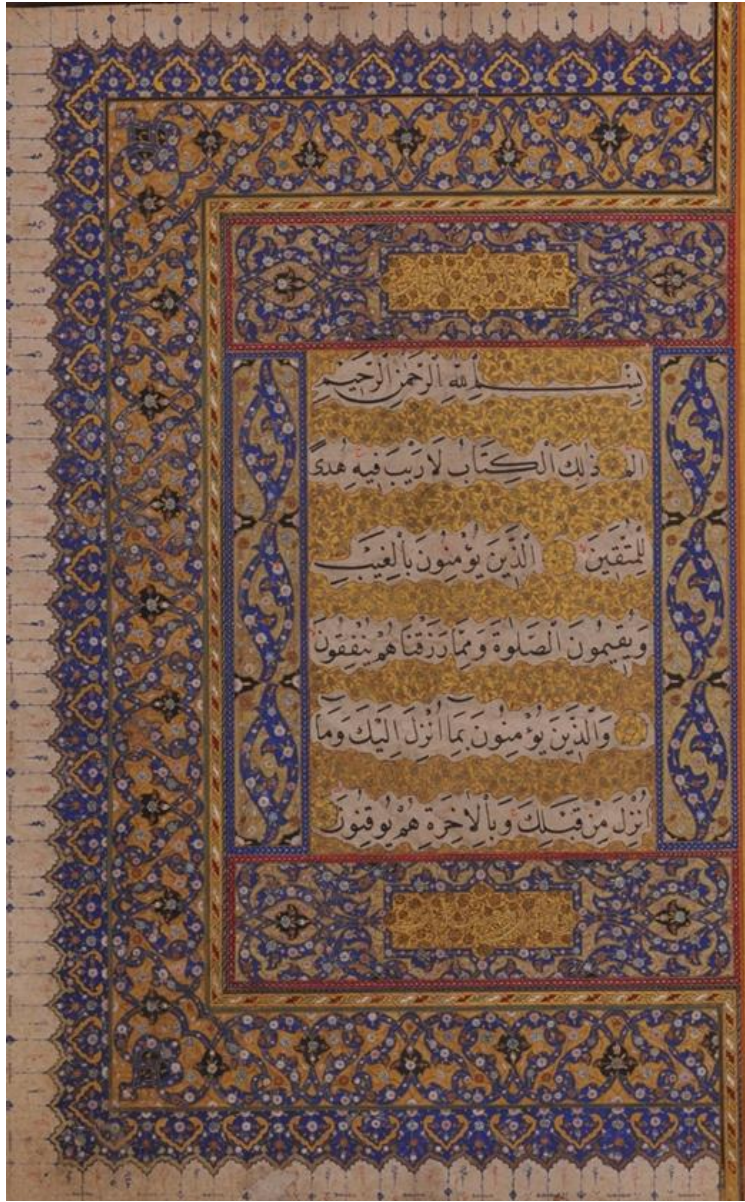 بِسْمِ اللهِ الرَّحْمٰنِ الرَّحِيمِ
الم ذٰلِكَ الْكِتَابُ لَا رَيْبَ فِيهِ هُدًى
لِلْمُتَّقِينَ الَّذِينَ يُؤْمِنُونَ بِالْغَيْبِ
وَيُقِيمُونَ الصَّلٰوةَ وَمِمَّا رَزَقْنَاهُمْ يُنْفِقُونَ
وَالَّذِينَ يُؤْمِنُونَ بِمَا اُنْزِلَ اِلَيْكَ وَمَا
اُنْزِلَ مِنْ قَبْلِكَ وَبِالْاٰخِرَةِ هُمْ يُوقِنُونَ